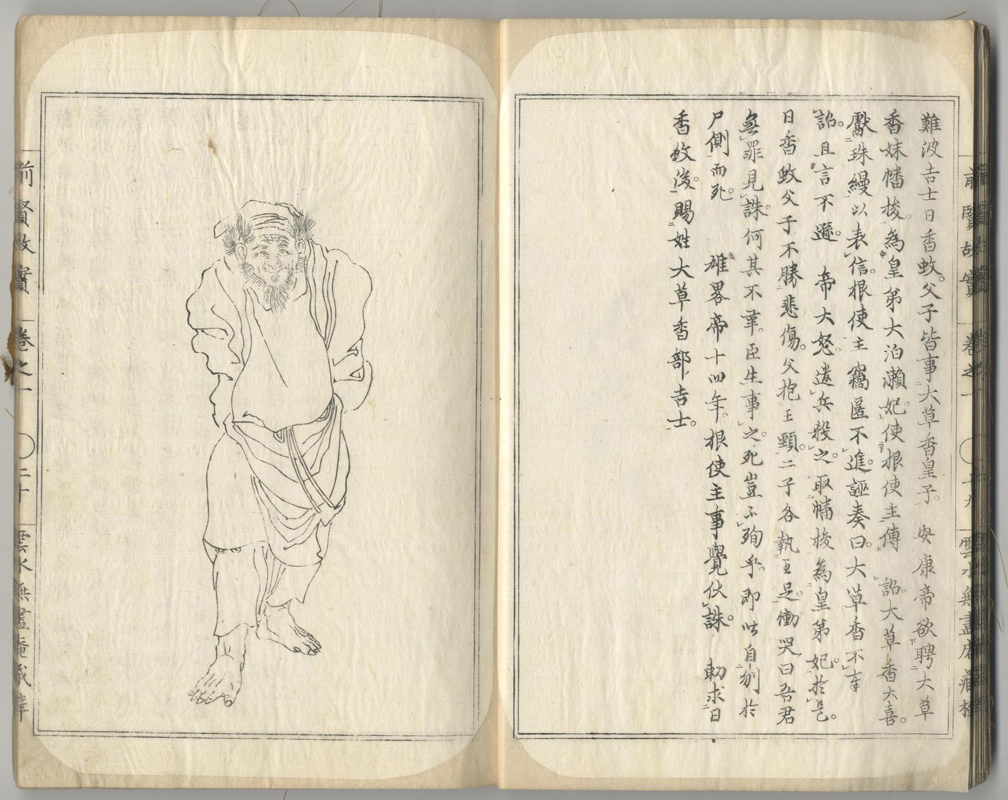 前賢故實 卷之一 ○十九 雲水無盡庵藏梓
難波吉士日香蚊。父子皆事大草香皇子。 安康帝欲聘大草
香妹幡梭。為皇弟大泊瀨妃。使根使主傳 詔。大草香大喜。
獻珠縵以表信。根使主竊匿不進。誣奏曰。大草香不奉
詔。且言不遜。 帝大怒。遣兵殺之。取幡梭為皇弟妃。於是。
日香蚊父子不勝悲傷。父抱王頸。二子各執王足。慟哭曰吾君
無罪見誅。何其不幸。臣生事之。死豈不殉乎。即皆自刎於
尸側而死。 雄畧帝十四年。根使主事覺伏誅。 勅求日
香蚊後。賜姓大草香部吉士。
前賢故實 卷之一 ○二十 雲水無盡庵藏梓